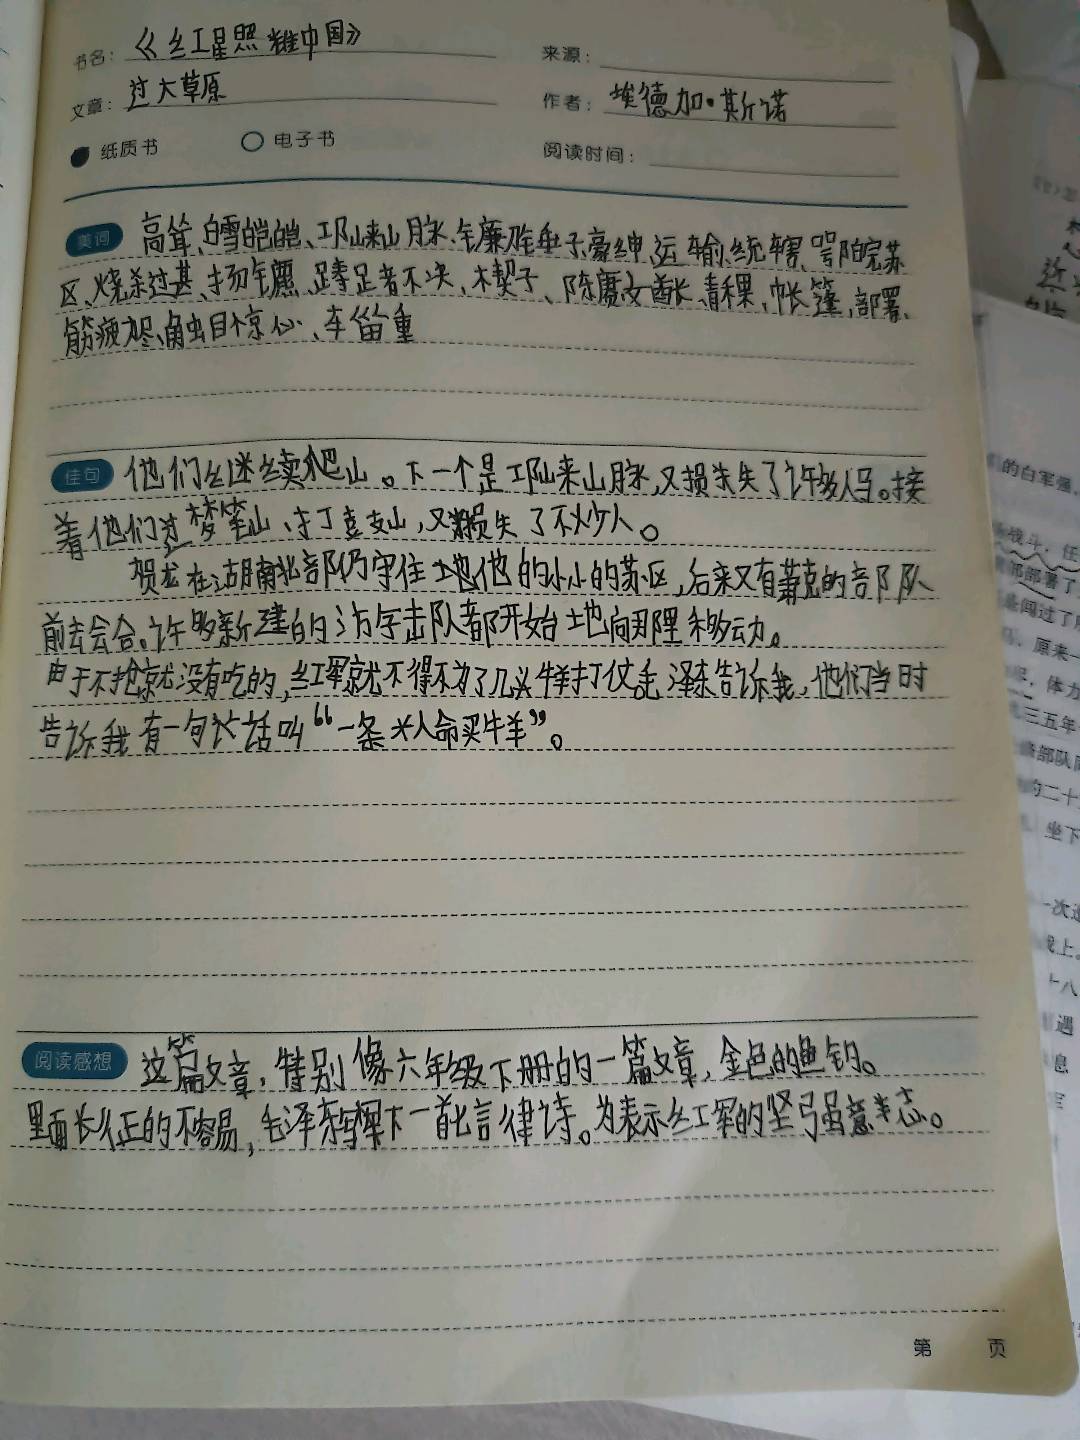 书名：《红星照耀中国》
来源：
文章：过大草原
作者：埃德加·斯诺
纸质书 电子书
阅读时间：
美词 高耸、白雪皑皑、邛崃山脉、锤子、豪绅、运输、统辖、鄂皖苏
区、烧杀过甚、扬镳、踌足者不决、楔子、酋长、青稞、帐篷、部署、
筋疲力尽、触目惊心、辎重
佳句 他们继续爬山。下一个是邛崃山脉,又损失了许多人马。接
着他们过梦笔山、打鼓山,又损失了不少人。
贺龙在湖南北部仍守住他的小小的苏区,后来又有萧克的部队
前去会合。许多新建的游击队都开始向那里移动。
由于不抢就没有吃的,红军就不得不为了几头牲打仗。毛泽东告诉我,他们当时
告诉我有一句忙话叫“一条人命买牛羊”。
阅读感想 这篇文章,特别像六年级下册的一篇文章,金色的鱼钩。
里面长征的不容易,毛泽东写下一首七言律诗。为表示红军的坚强意志。
第 页
的白军强,
战斗,任
部署了
闯过了
原来一
体力
三五年
部队
的二十
坐下
一次
上。
十八
遇
息